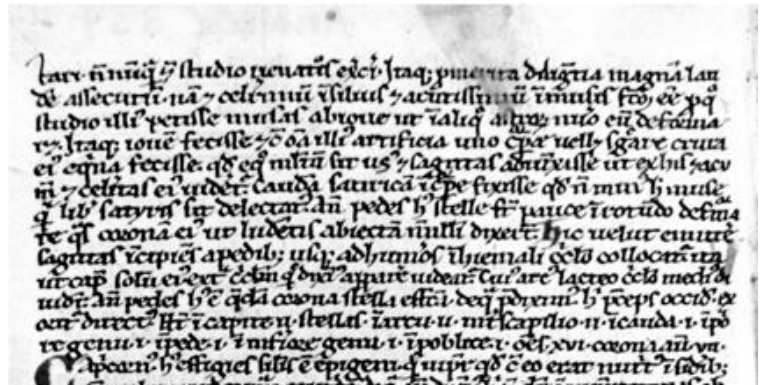 tari. n̄ nūq̄ ⁊ studio uenatiōs exc̄i. Itaq; p merita diligētia magnā lau
dē assecutū. nā ⁊ celerimū ī siluis ⁊ acutissimū ī musis fcō; eē p q̊
studio illi' petisse musas ab ioue ut ī aliq̊ nūo eū deforma
Itaq; iouē fecisse ⁊ c̄ oīa illi' artificia uno uell; crura
ei' eq̄na fecisse. qd eq̊ mltū sit us' ⁊ sagittas adiūxisse ut ex his ⁊ acu
m̄ ⁊ celitas ei' uidet. caudā satiricā ī cpe fixisse qd n̄ min' h̄ muse
q̄ lib' satyris sit delectat'. añ pedes h' stelle st̄ pauce ī rotūdo deforma
te q̄s coronā ei' ut ludētis abiectā nūlli dixert. Hic uelut emittē
sagittas īcipiēs a pedib; usq; ad humōs ī hiemali c̄clo collocat' ita
ut cap' solū ei' ext̄ c̄clm q̄ dixi' apparē uideat. Cui' arc' lacteo c̄clo medi' di
uidit̄. añ pedes h' ē q̄da corona stellis effcā. de q̄ p̄dixim'. h' p̄ceps occid. ex
orit̄ direct'. h̄t ī capite .ii. stellas. ī arcu .ii. ī scapilio .ii. ī cauda .i. ī pō
re genu .i. ī pede .i. ī īfiore genu .i. ī poblice .i. oēs .xvi. corona aū .vii.
Capcorn' h' effigies silis ē epigeni. q̄ iupr qd c̄ eo erat nutrit' ī sidib;